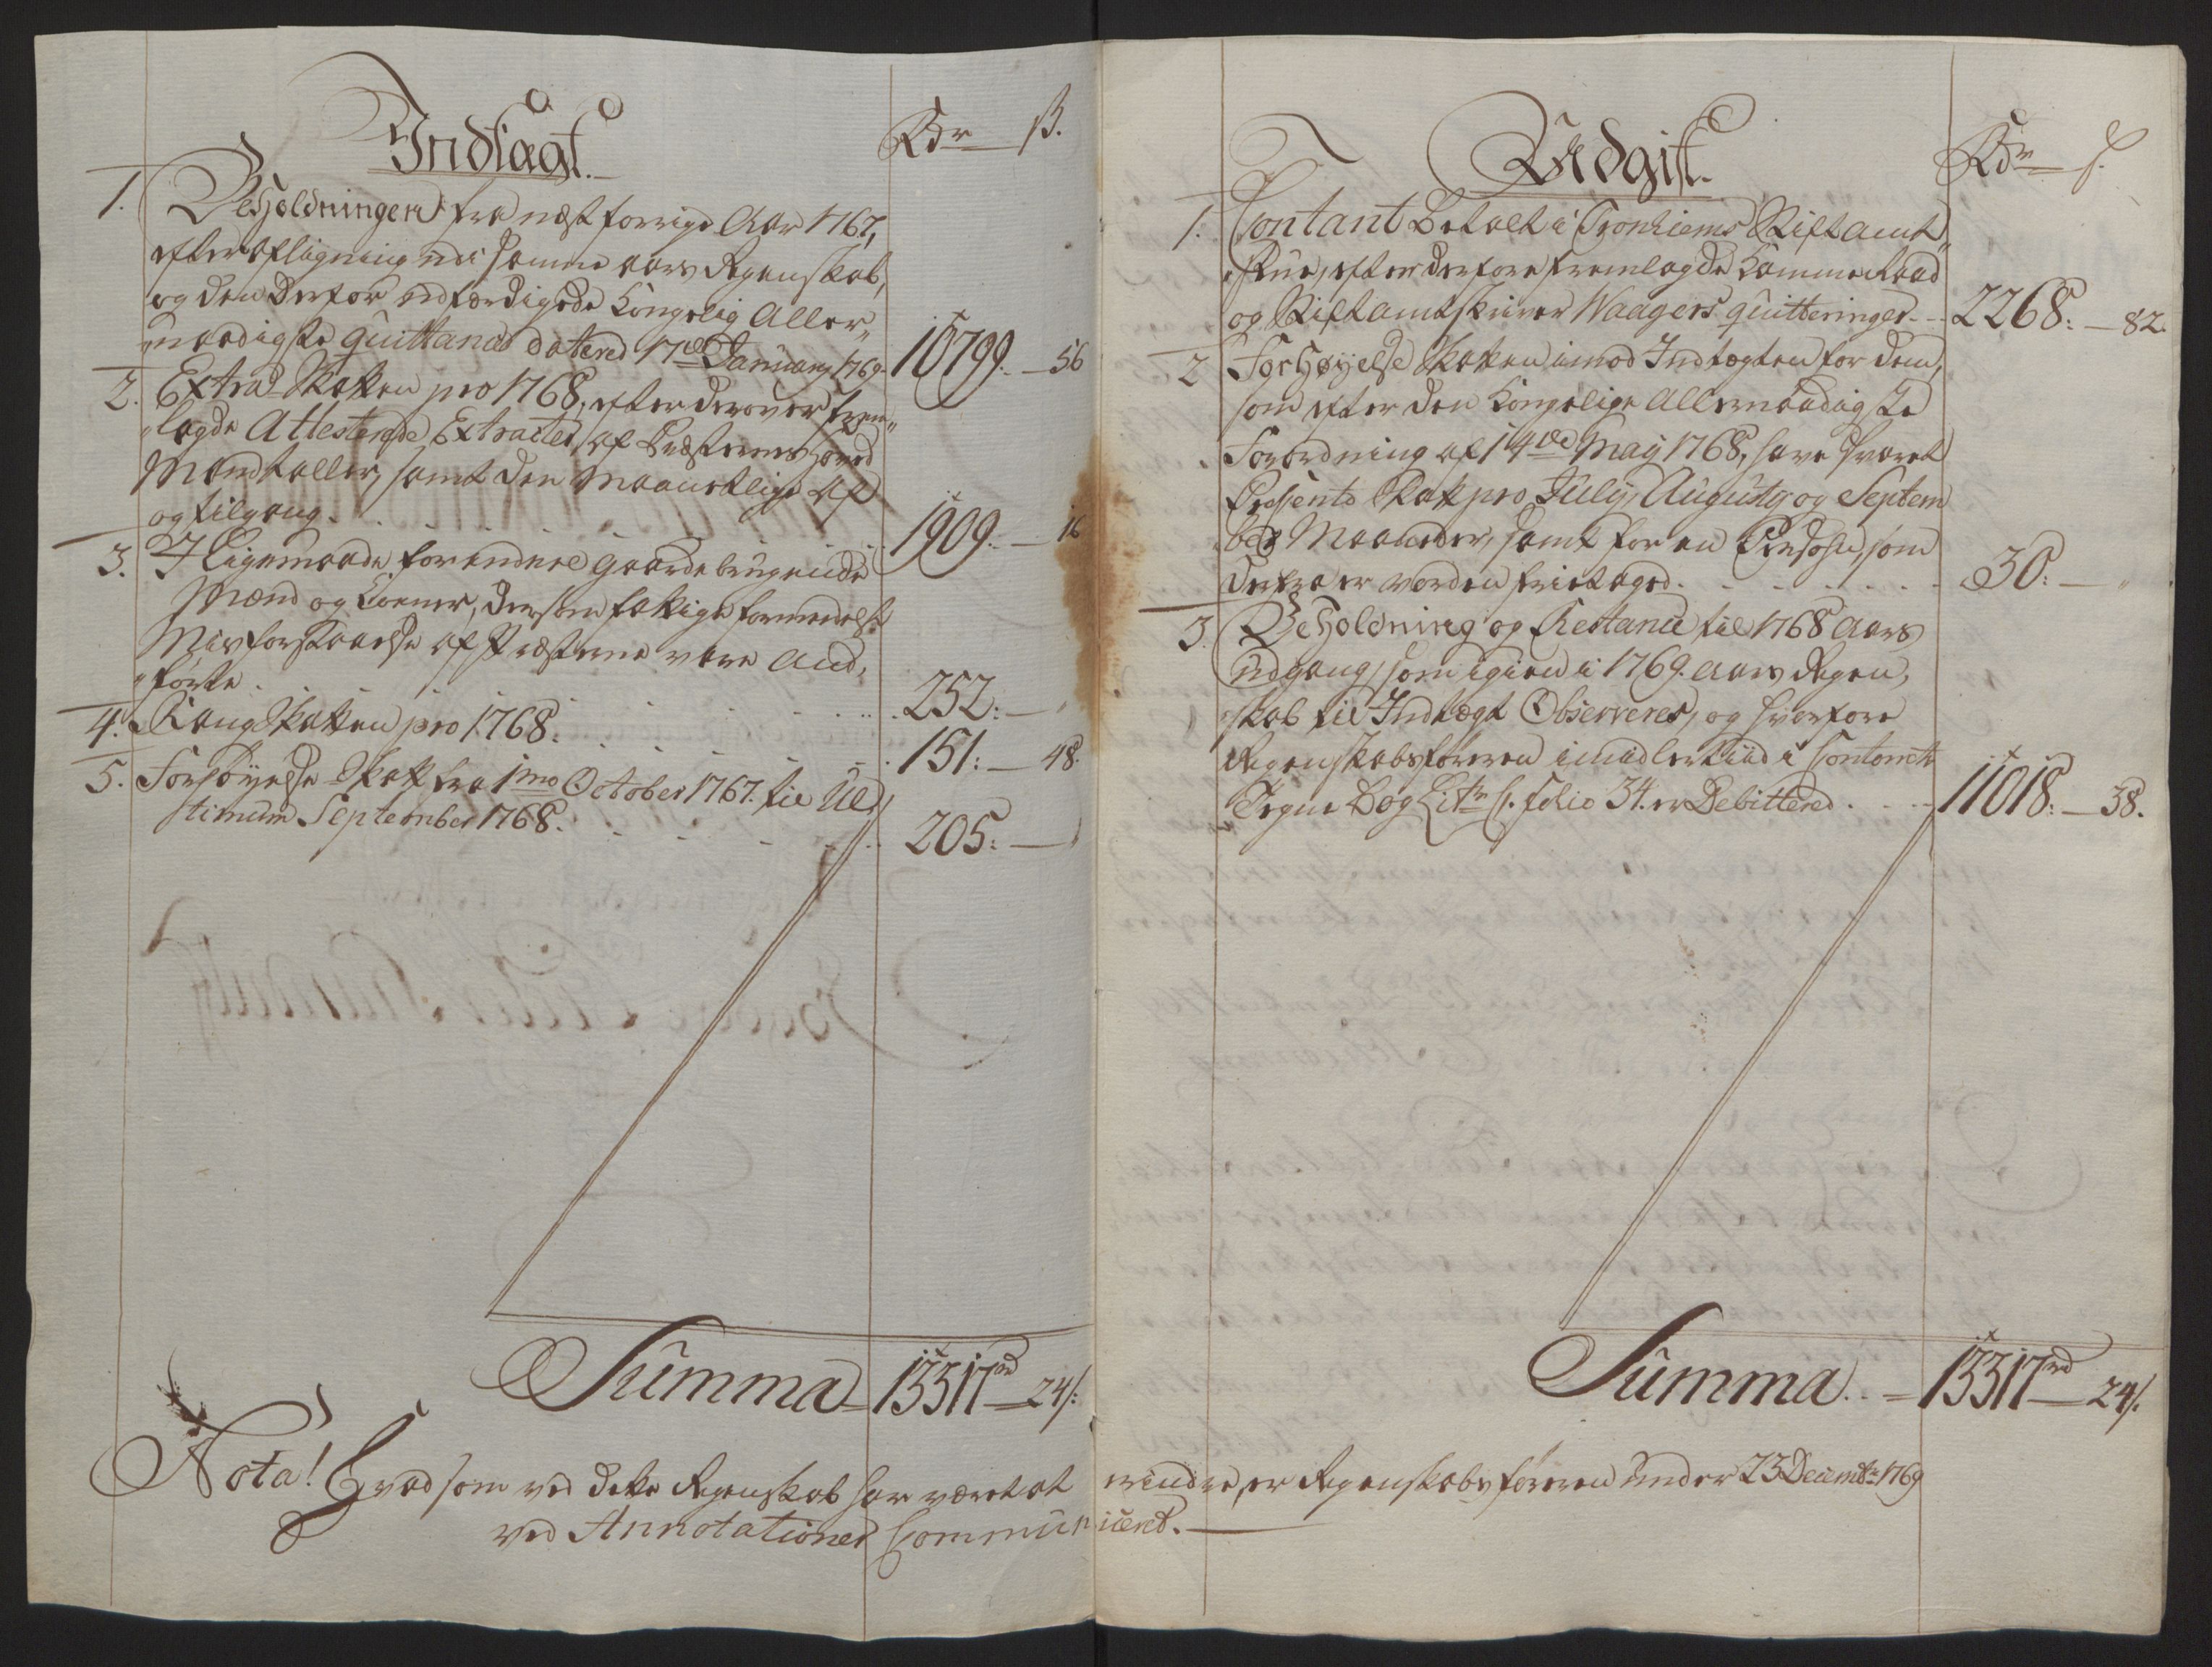 Indtægt.
Rdr ß.
1. Beholdningen fra næst forrige Aar 1767,
efter aflægning udi samme aars Regenskab,
og den derfor udfærdigede Kongelig Aller„
naadigste quittance dateret 17de January 1769. 10799. — 56
2. Extra Skatten pro 1768, efter derover frem„
„lagde Attesterede Extracter af Præsternes Hoved
Mandtaller, samt den Maanetlige Af
og tilgang. 1909. — 16
3. I Ligemaade for endeel gaardebrugende
Mænd og Koener, der som fattige formedelst
Misforstaaelse af Præsterne vare And„
„førte. 252: — „
4. Rang Skatten pro 1768. 151: — 48.
5. Forhøyelse Skatt fra 1mo October 1767. til Ul„
„timum September 1768. 205: — „
Summa 13317rd 24ß.
Udgift.
Rdr ß.
1. Contant Betalt i Tronhiems Stiftamt„
„stue, efter derfore fremlagde Kammerraad
og Stiftamtskriver Waagers quitteringer. 2268. — 82.
2 Forhøyelse Skatten imod Indtægten for dem,
som efter den Kongelige Allernaadigste
Forordning af 14de May 1768, have svaret
Procento Skatt pro July, Augusty og Septem
ber Maaneder, samt for en Person, som
derfra er vorden fritaget. 30: — „
3. Beholdning og Restance til 1768 Aars
udgang, som igien i 1769. aars Regen„
„skab til Indtægt Observeres, og hvorfore
Regenskabsføreren imidlertiid i Contoirets
Tegne Bog Litr C. folio 34. er Debitteret. 11018: — 38.
Summa. 13317rd 24ß.
Nota! Hvad som ved dette Regenskab har været at erindre, er Regenskabsføreren under 23 Decembr 1769
ved Annotationer Communiceret.